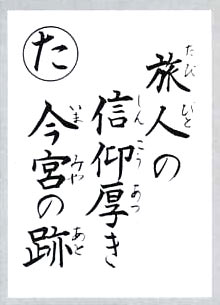 た
旅人の
たびびと
信仰厚き
しんこうあつ
今宮の跡
いまみやあと